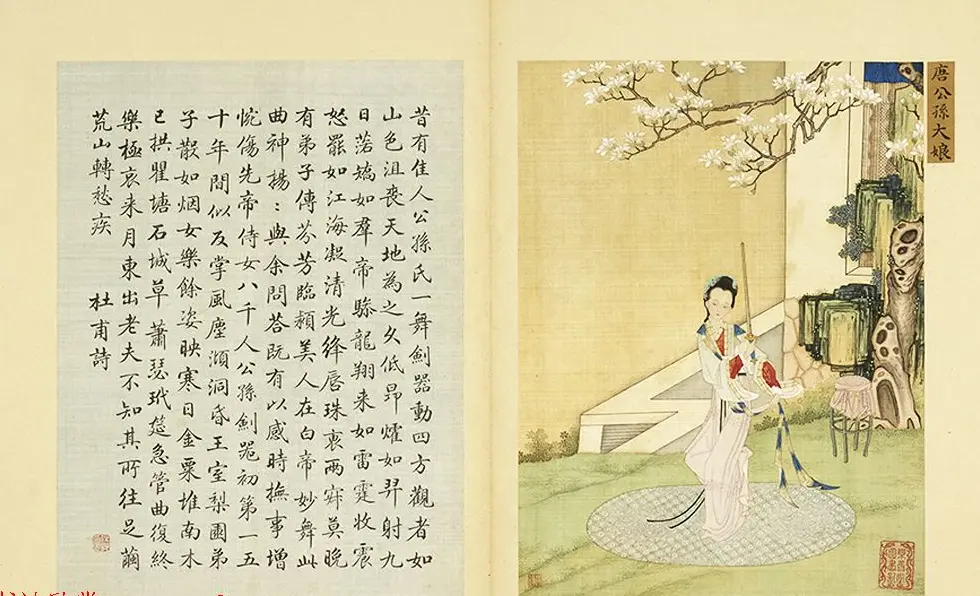 唐公孫大娘
昔有佳人公孫氏一舞劍器動四方觀者如
山色沮喪天地為之久低昂燿如羿射九
日落矯如羣帝驂龍翔来如雷霆收震
怒罷如江海凝清光絳唇珠袖兩寂莫晚
有弟子傳芬芳臨潁美人在白帝妙舞此
曲神揚:與余問荅既有以感時撫事增
惋傷先帝侍女八千人公孫劍器初第一五
十年間似反掌風塵澒洞昏王室梨園弟
子散如烟女樂餘姿映寒日金粟堆南木
已拱瞿塘石城草蕭瑟玳筵急管曲復終
樂極哀来月東出老夫不知其所往足繭
荒山轉愁疾
杜甫詩